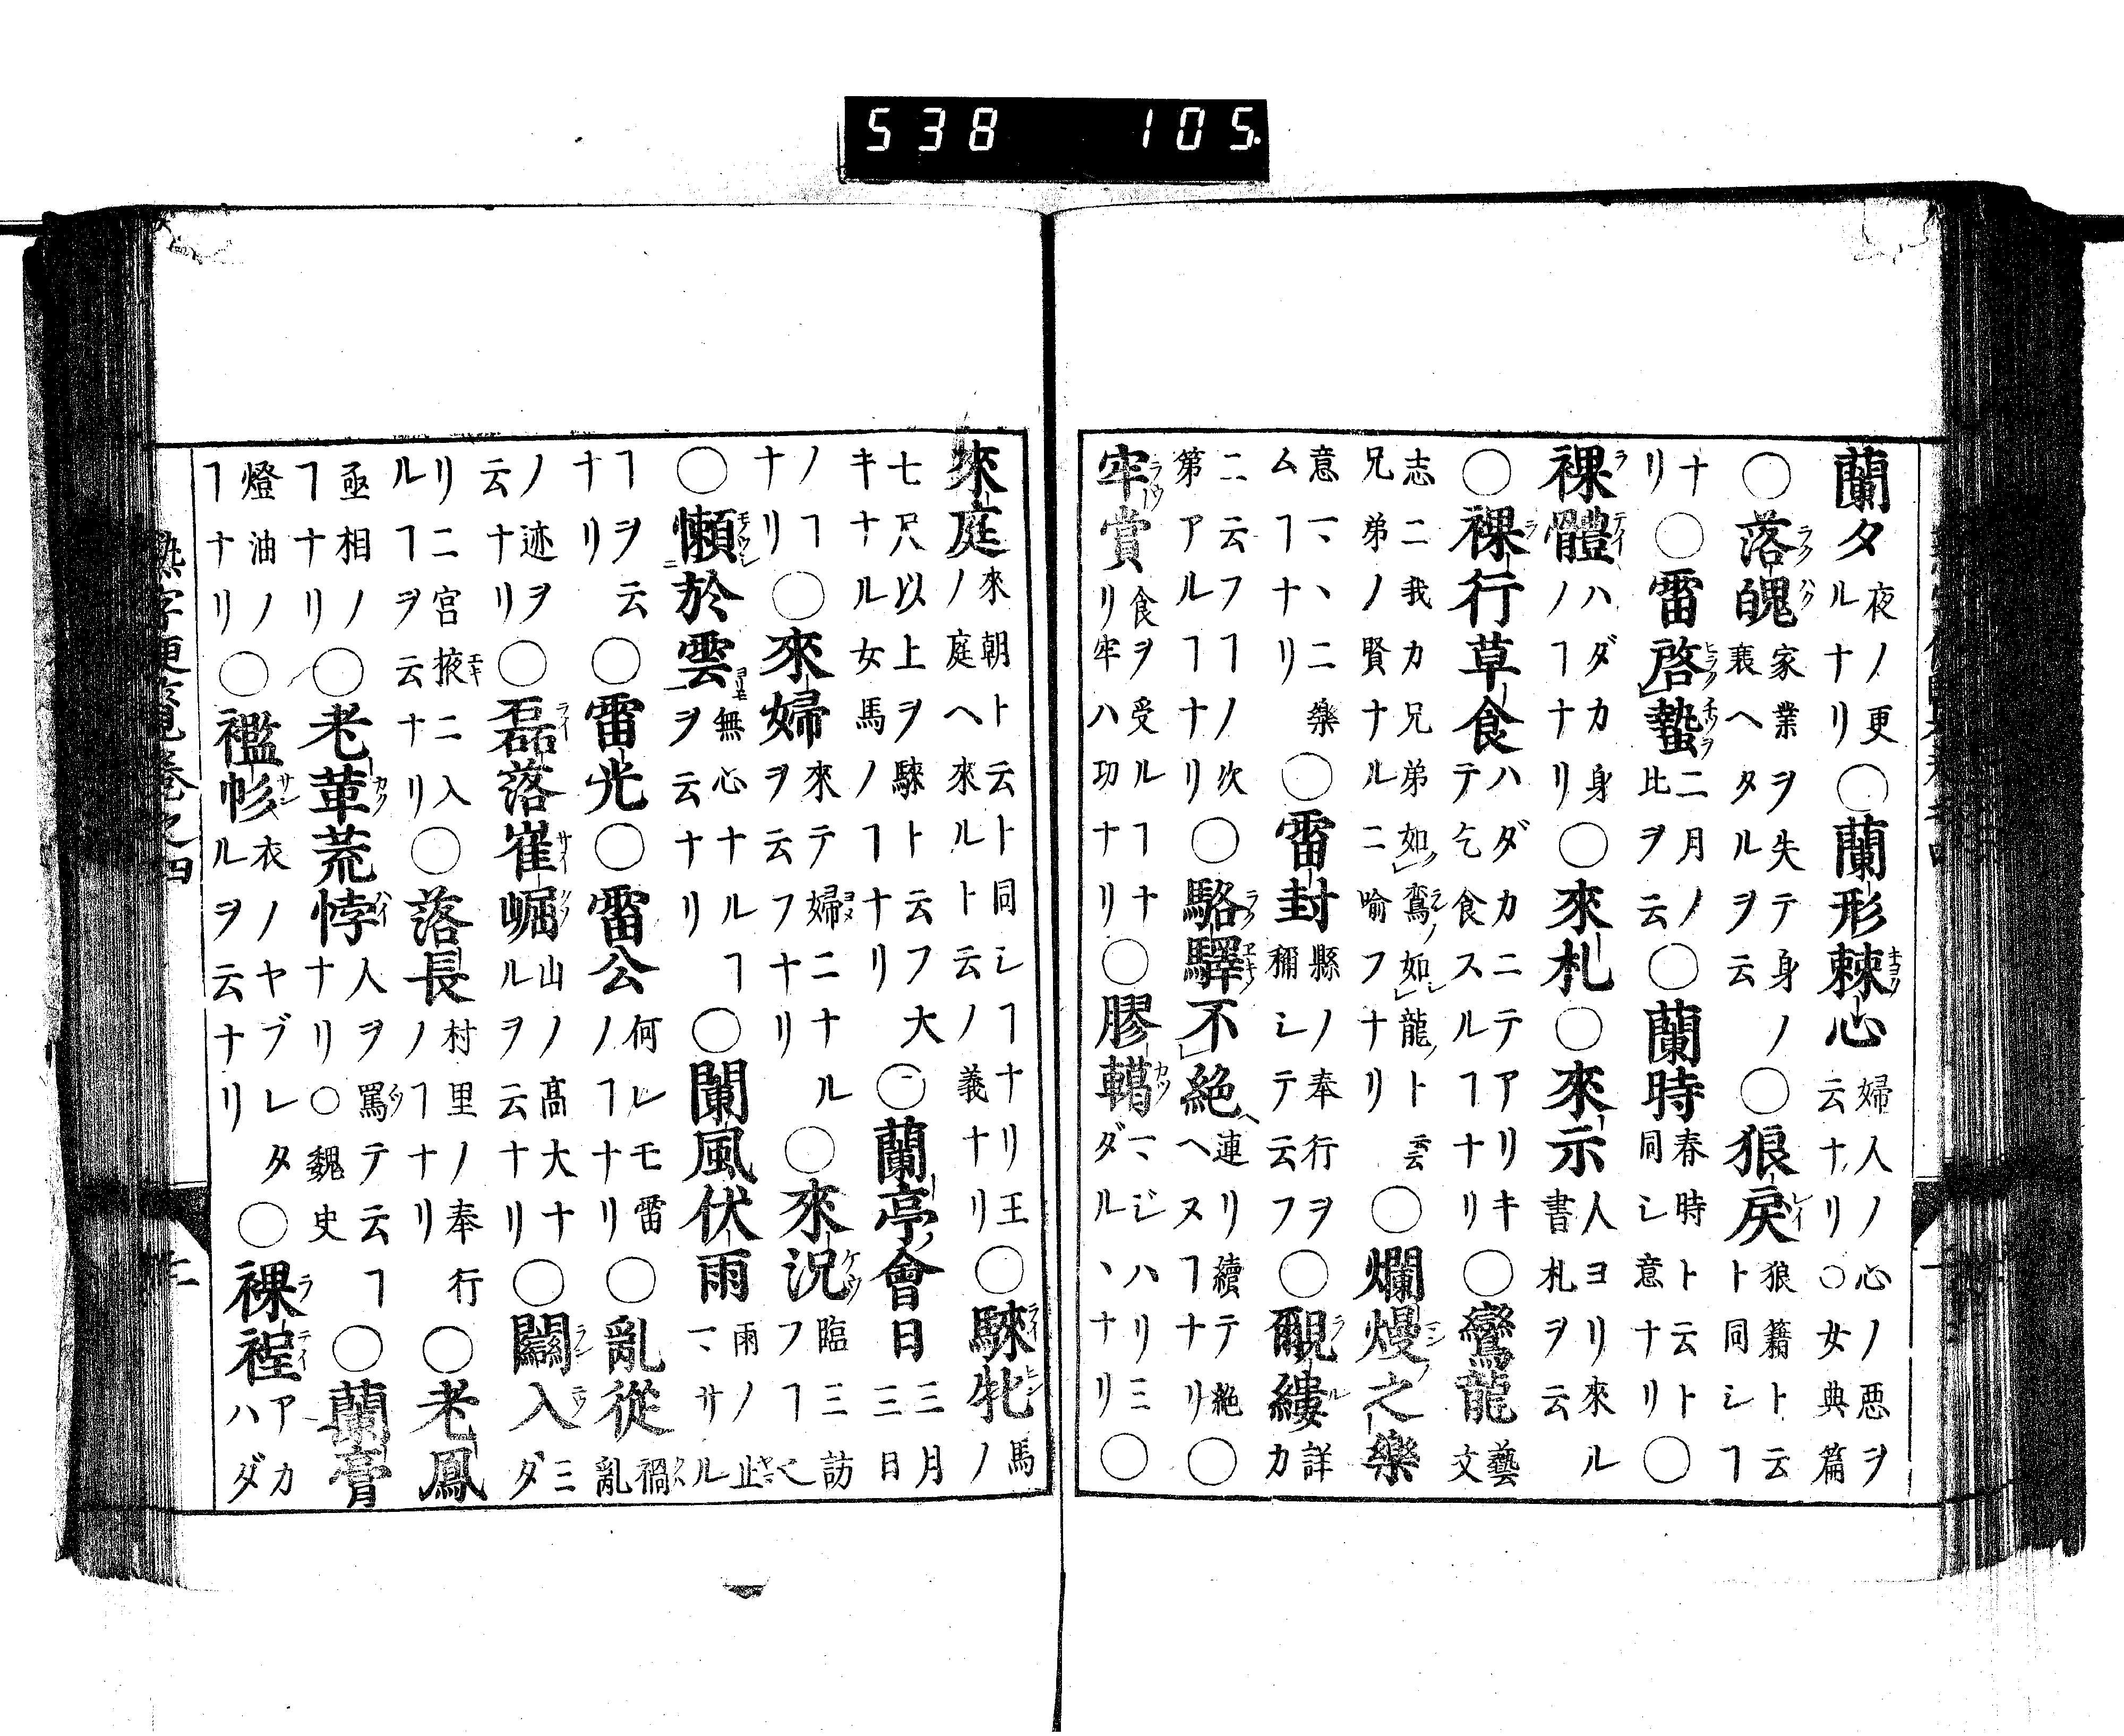 538 105
蘭夕夜ノ更ルナリ○蘭形棘心婦人ノ心ノ悪ヲ云ナリ○女典篇
○落魄家業ヲ失テ身ノ衰ヘタルヲ云○狼戻狼籍ト云ト同シヿ
ナリ○雷啓蟄二月ノ比ヲ云○蘭時春時ト云ト同シ意ナリ○
裸體ハダカ身ノヿナリ○來札○來示人ヨリ來ル書札ヲ云
○裸行草食ハダカニテアリキテ乞食スルヿナリ○鸞龍藝文
志ニ我カ兄弟如鸞如龍ト云云兄弟ノ賢ナルニ喩フナリ○爛熳之樂
意マヽニ樂ムヿナリ○雷封縣ノ奉行ヲ稱シテ云フ○覶縷詳カ
ニ云フヿノ次第アルヿナリ○駱驛不絶連リ續テ絶ヘヌヿナリ○
牢賞食ヲ受ルヿナリ牢ハ功ナリ○膠轕マジハリミダルヽナリ○
來庭來朝ト云ト同シヿナリ王ノ庭ヘ來ルト云ノ義ナリ○騋牝馬ノ
七尺以上ヲ騋ト云フ大キナル女馬ノヿナリ○蘭亭會日三月三日
ノヿナリ○來婦來テ婦ニナルヲ云フナリ○來況臨ミ訪フヿ也
○懶於雲無心ナルヿヲ云ナリ○闌風伏雨雨ノ止マサル
ヿヲ云ナリ○雷光○雷公何レモ雷ノヿナリ○亂從禍亂
ノ迹ヲ云ナリ○磊落崔崛山ノ髙大ナルヲ云ナリ○闌入ミダ
リニ宮掖ニ入ルヿヲ云ナリ○落長村里ノ奉行ノヿナリ○老鳳
亟相ノヿナリ○老革荒悖人ヲ罵テ云ヿナリ○魏史○蘭膏
燈油ノヿナリ○襤幓衣ノヤブレタルヲ云ナリ○裸裎アカハダ
熟字便覧卷之四